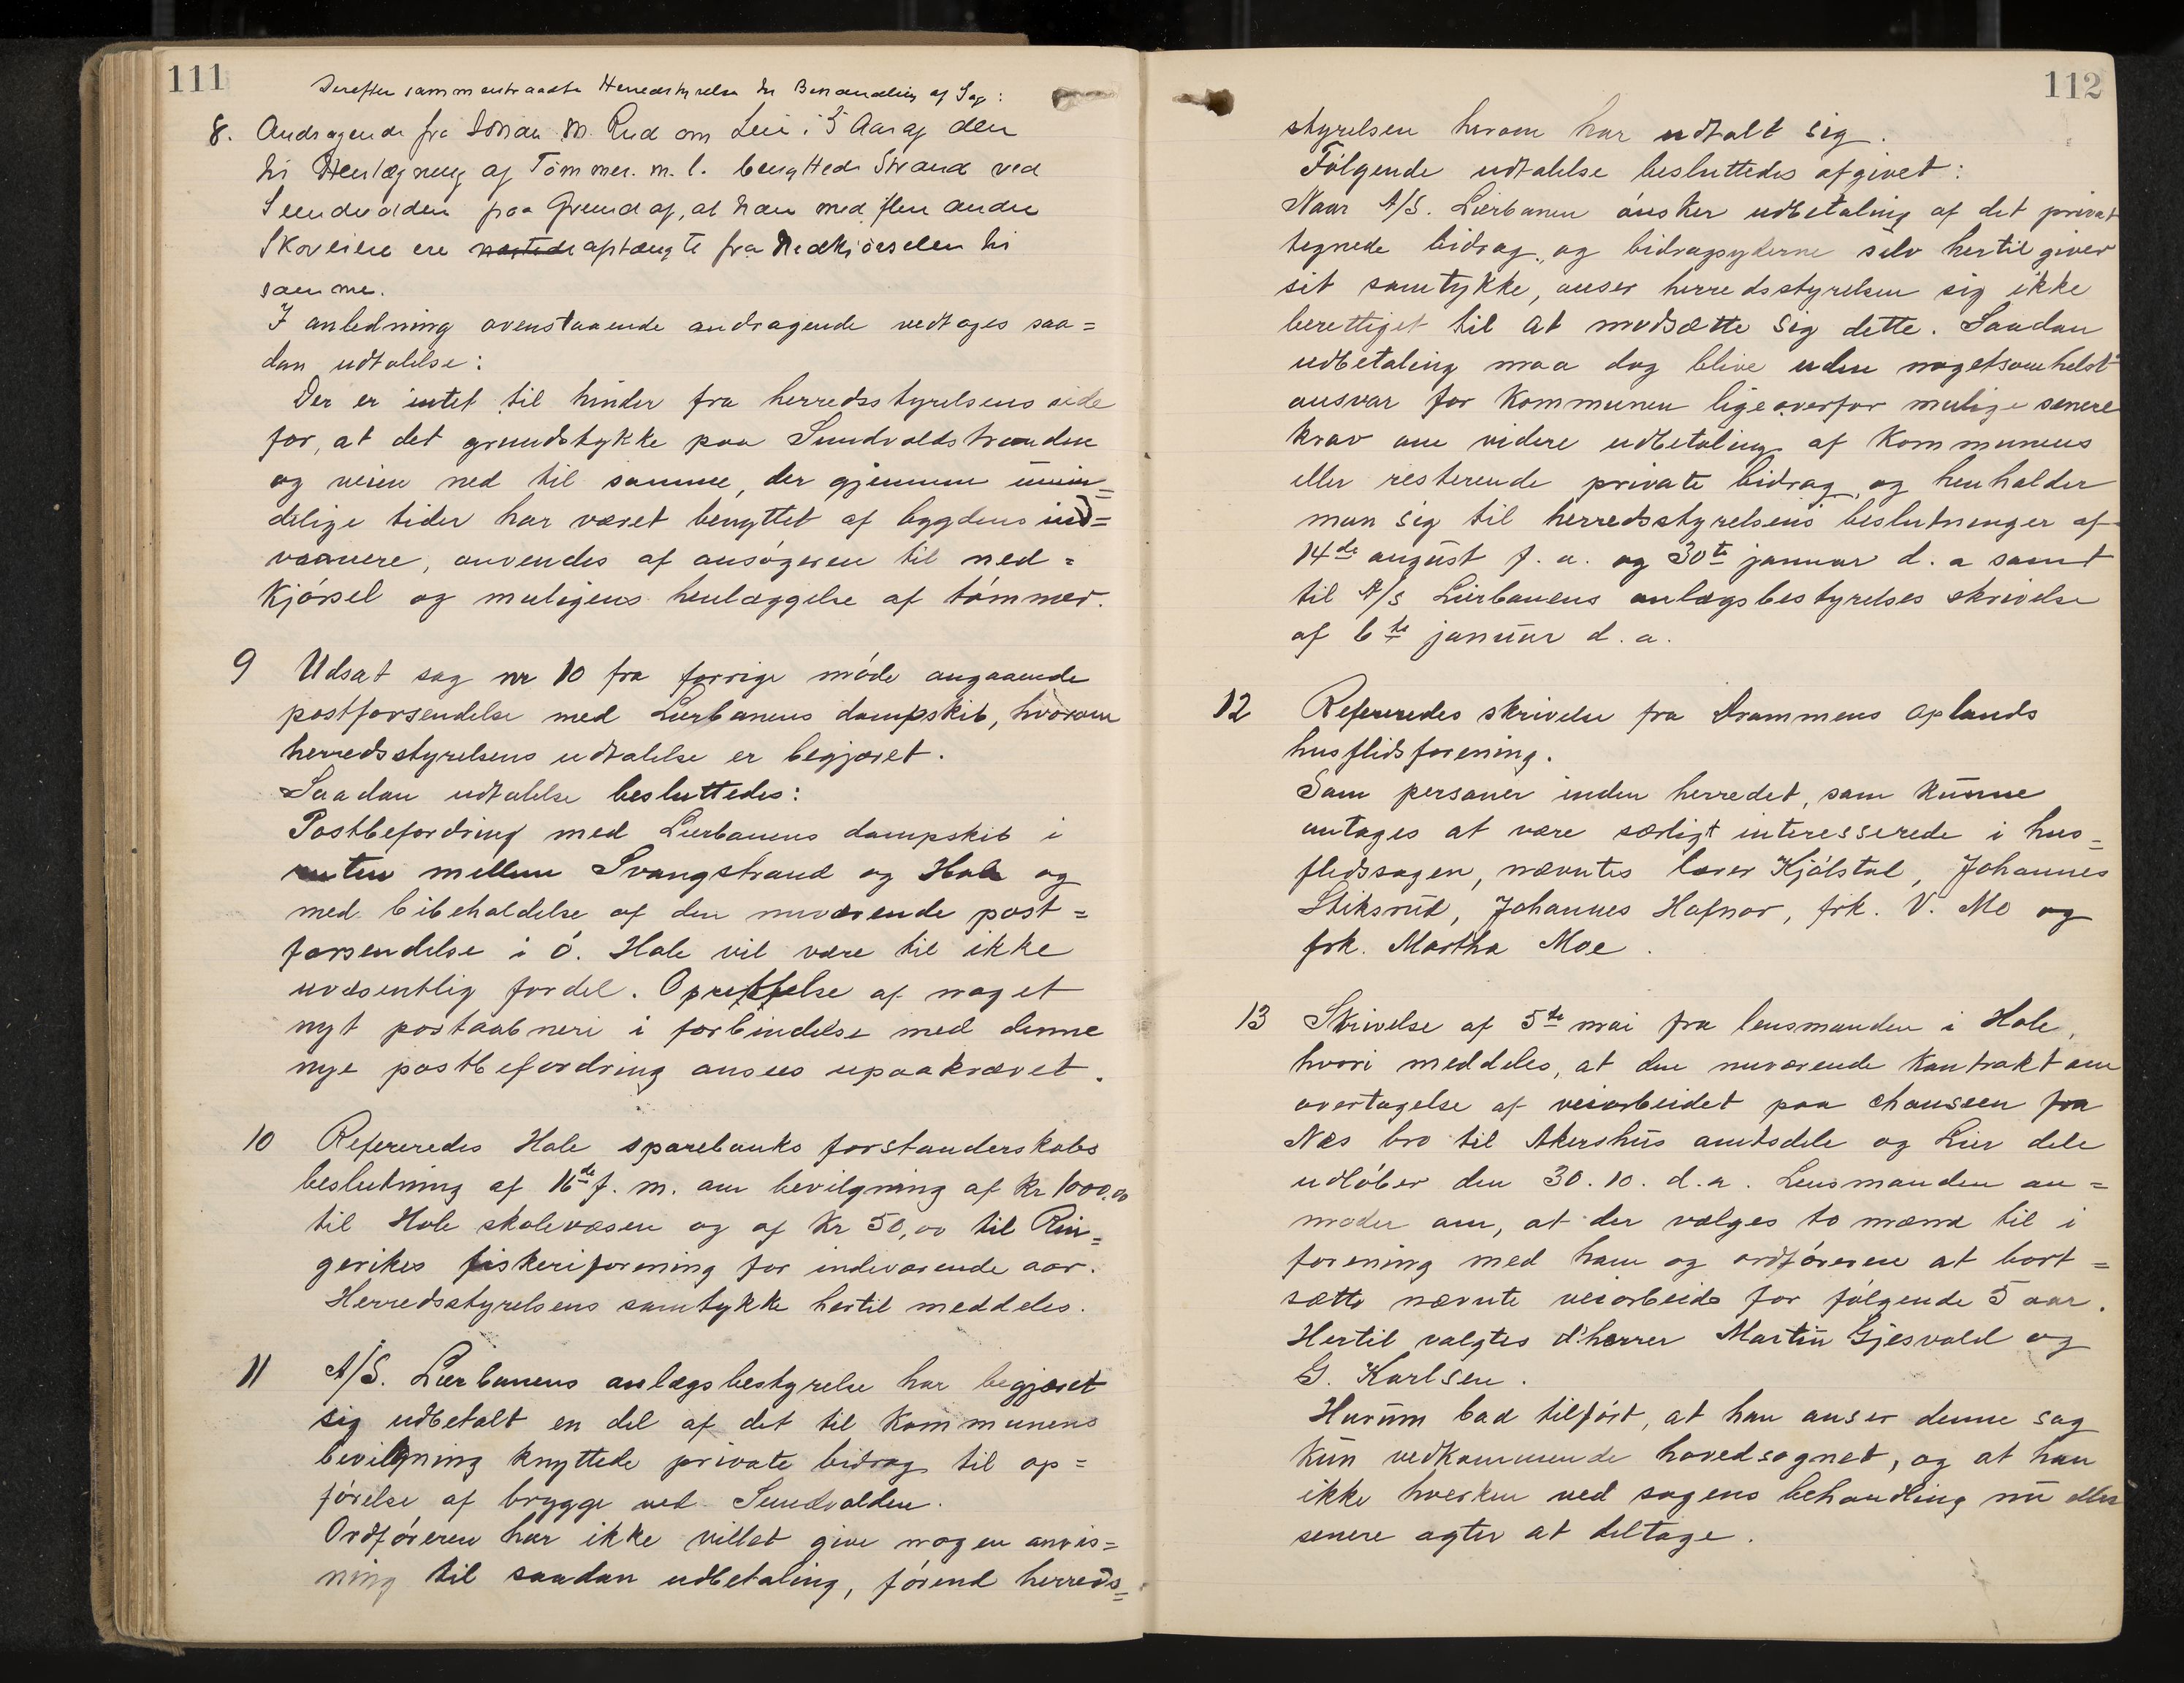 111
Derefter sammentraadte Herredstyrelsen til Behandling af Sag:
8. Andragende fra Johan M. Rud om Leie i 5 Aar af den
til Henlægning af Tømmer m. l. benyttede Strand ved
Sundvolden paa Grund af, at han med flere andre
Skoveiere ere afstængte fra Nedkjørselen til
samme.
I anledning ovenstaaende andragende vedtoges saa=
dan udtalelse:
Der er intet til hinder fra herredsstyrelsens side
for, at det grundstykke paa Sundvoldstranden
og veien ned til samme, der gjennem umin=
delige tider har været benyttet af bygdens ind=
vaanere, anvendes af ansøgeren til ned=
kjørsel og muligens henlæggelse af tømmer.
9 Udsat sag nr 10 fra forrige møde angaaende
postforsendelse med Lierbanens dampskib, hvorom
herredsstyrelsens udtalelse er begjæret.
Saadan udtalelse besluttedes:
Postbefordring med Lierbanens dampskib i
ruten mellem Svangstrand og Hole og
med bibeholdelse af den nuværende post=
forsendelse i ø. Hole vil være til ikke
uvæsentlig fordel. Oprettelse af noget
nyt postaabneri i forbindelse med denne
nye postbefordring ansees upaakrævet.
10 Refereredes Hole sparebanks forstanderskabs
beslutning af 16de f. m. om bevilgning af kr 1000,00
til Hole skolevæsen og af kr 50,00 til Rin=
gerikes fiskeriforening for indeværende aar.
Herredsstyrelsens samtykke hertil meddeles.
11 A/S. Lierbanens anlægsbestyrelse har begjæret
sig udbetalt en del af det til kommunens
bevilgning knyttede private bidrag til op=
førelse af brygge ved Sundvolden.
Ordføreren har ikke villet give nogen anvis=
ning til saadan udbetaling, førend herreds=
112
styrelsen herom har udtalt sig.
Følgende udtalelse besluttedes afgivet:
Naar A/S. Lierbanen ønsker udbetaling af det privat
tegnede bidrag, og bidragsyderne selv hertil giver
sit samtykke, anser herredsstyrelsen sig ikke
berettiget til at modsætte sig dette. Saadan
udbetaling maa dog blive uden nogetsomhelst
ansvar for kommunen ligeoverfor mulige senere
krav om videre udbetaling af kommunens
eller resterende private bidrag, og henholder
man sig til herredsstyrelsens beslutninger af
14de august f. a. og 30te januar d. a samt
til A/S Lierbanens anlægsbestyrelses skrivelse
af 6te januar d. a.
12 Refereredes skrivelse fra Drammens oplands
husflidsforening.
Som personer inden herredet, som kunne
antages at være særligt interesserede i hus=
flidssagen, nævntes lærer Kjølstad, Johannes
Stiksrud, Johannes Hafnor, frk. V. Mo og
frk. Martha Moe.
13 Skrivelse af 5te mai fra lensmanden i Hole,
hvori meddeles, at den nuværende kontrakt om
overtagelse af veiarbeidet paa chausseen fra
Næs bro til Akershus amtsdele og Lier dele
udløber den 30.10. d. a. Lensmanden an=
moder om, at der vælges to mænd til i
forening med ham og ordføreren at bort=
sætte nævnte veiarbeide for følgende 5 aar.
Hertil valgtes d'herrer Martin Gjesvold og
G. Karlsen.
Hurum bad tilført, at han anser denne sag
kun vedkommende hovedsognet, og at han
ikke hverken ved sagens behandling nu eller
senere agter at deltage.